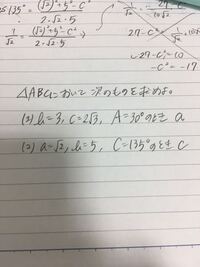 cos135° = (√2)²+5²-C² / 2·√2·5
1/√2 = (√2)²+5²-C² / 2·√2·5
27-C²
-C² = -17
△ABCにおいて次のものを求めよ。
b=3, c=2√3, A=30°のとき a
(2) a=√2, b=5, C=135°のとき c